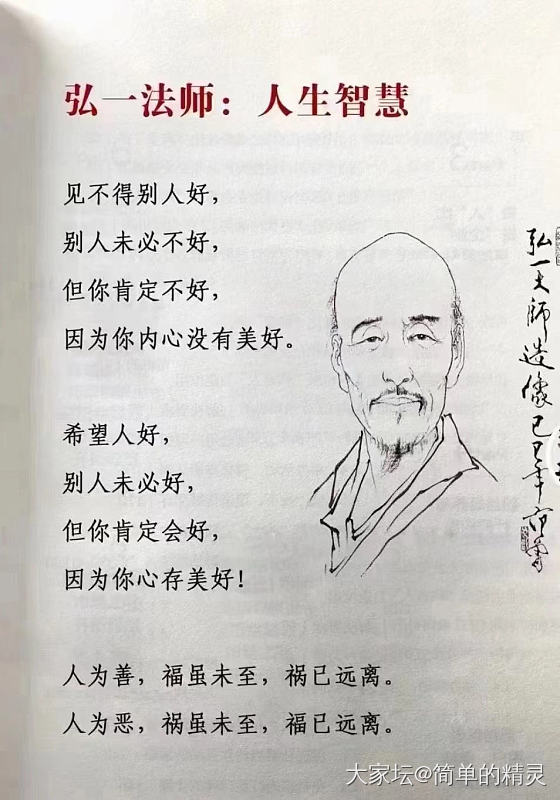 弘一法师：人生智慧
见不得别人好，
别人未必不好，
但你肯定不好，
因为你内心没有美好。
希望人好，
别人未必好，
但你肯定会好，
因为你心存美好！
人为善，福虽未至，祸已远离。
人为恶，祸虽未至，福已远离。
弘一大师造像己巳年范曾
大家坛@简单的精灵